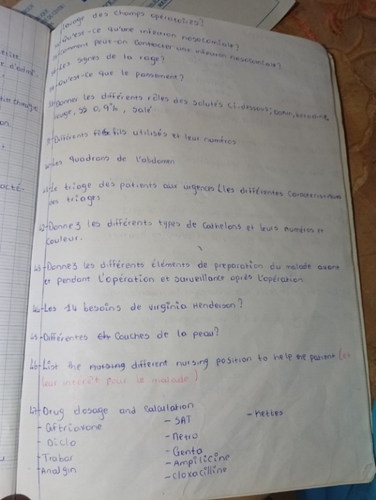 lavage des champs opératoires?
Qu'est-ce qu'une infection nosocomiale?
Comment peut-on contracter une infection nosocomiale?
Les signes de la rage?
Qu'est-ce que le pansement?
Donner les différents rôles des solutés ci-dessous;
rouge, 0,9%, salé
Différents fils utilisés et leur numéros
Les quadrans de l'abdomen
Le triage des patients aux urgences (les différentes
des triages
42-Donnez les différents types de Cathelons et leurs numéros et
couleur.
43-Donnez les différents éléments de preparation du malade avant
et pendant l'opération et surveillance après l'opération
44-Les 14 besoins de Virginia Henderson?
45-Différentes Couches de la peau?
46-List the nursing different nursing position to help the patient (
leur interêt pour le malade?
47-Drug dosage and calculation
- Ceftriaxone - SAT - Metteo
- Diclo - Metro
- Trabar - Genta
- Analgin - Ampilicine
- cloxacilline